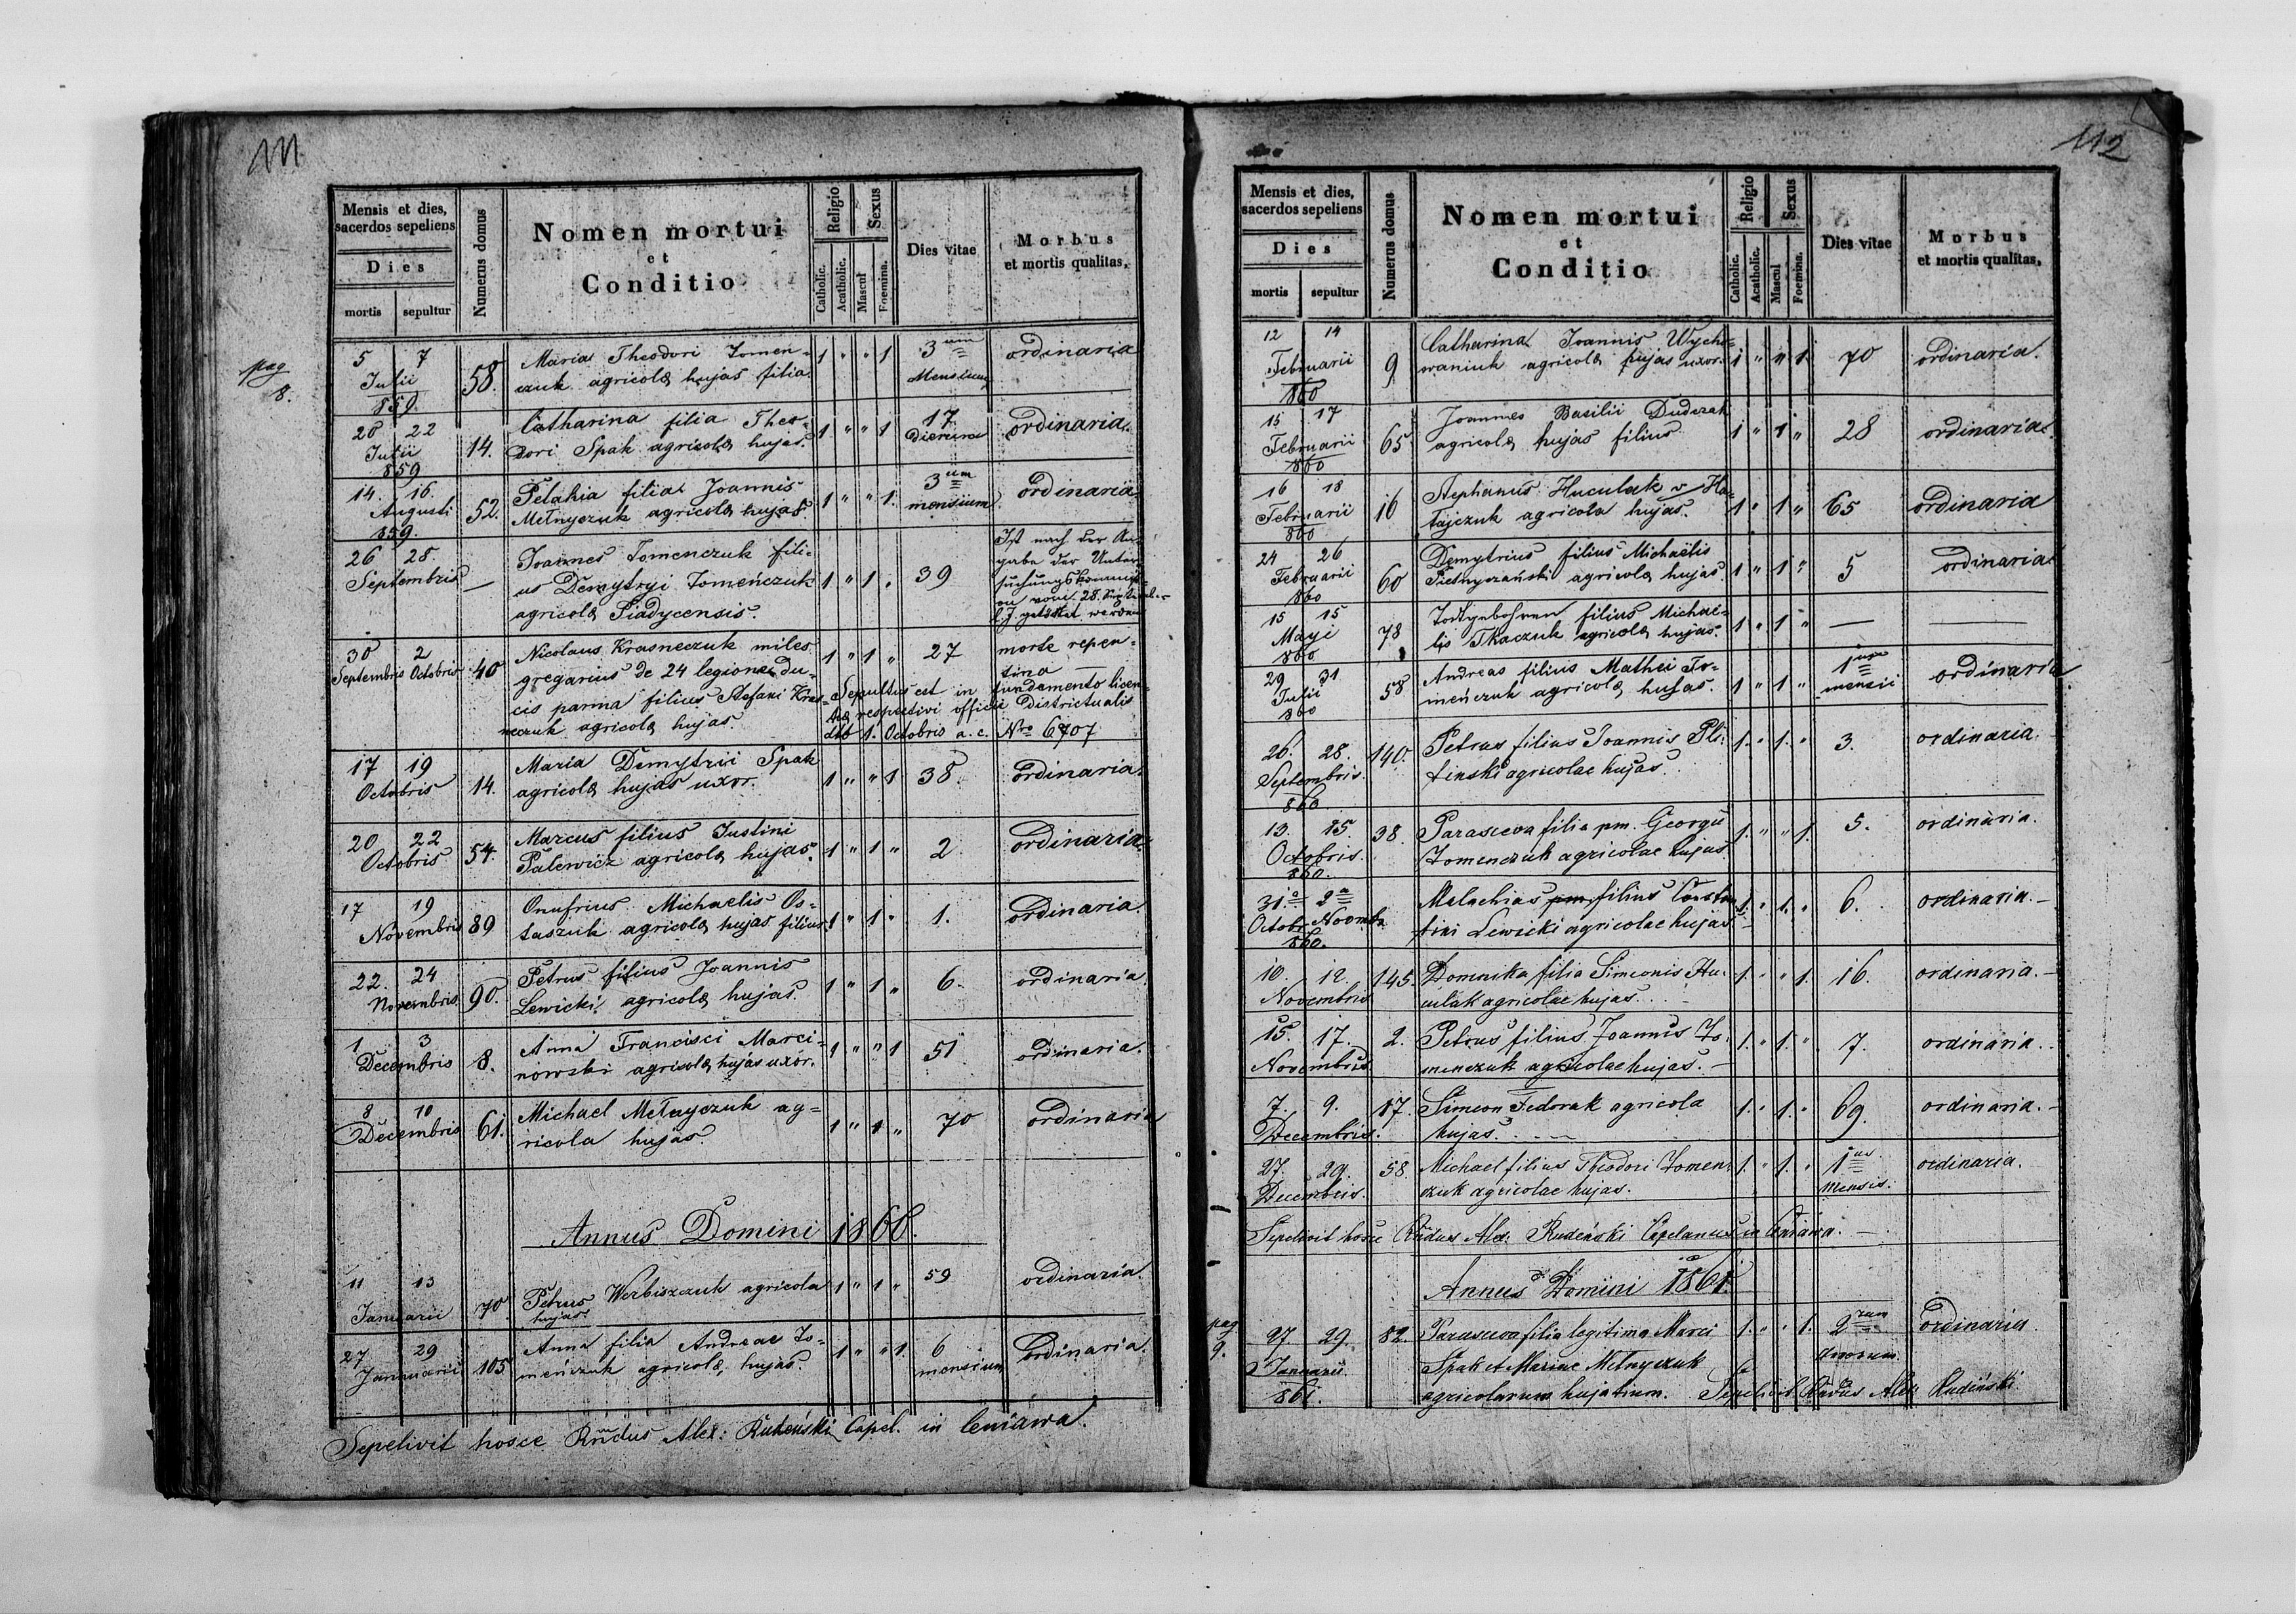 111.
pag
8.
Mensis et dies, sacerdos sepeliens
Dies
mortis sepultur
Numerus domus
Nomen mortui
et
Conditio
Religio
Catholic. Acatholic.
Sexus
Mascul Foemina.
Dies vitae
Morbus
et mortis qualitas,
5 7 Julii 859. 58. Maria Theodori Tomen- 1 " " 1 3 um Mensium ordinaria
czuk agricolæ hujas filia.
20 22 Julii 859 14. Catharina filia Theo- 1 " " 1 17. Dierum ordinaria.
dori Spak agricolæ hujas.
14. 16. Augusti 859. 52. Pelahia filia Joannis 1 " " 1. 3 um mensium ordinaria
Mełnyczuk agricolæ hujas.
26 28. Septembris — Joannes Tomenczuk fili- 1 " 1 " 39 Ist nach der An-
us Demytryi Tomeńczuk gabe der Unter-
agricolæ Siadycensis. suchungskommissi-
on vom 28. September
l. J. getödtet worden
30 2 Septembris Octobris 40 Nicolaus Krasneczuk miles 1 " 1 " 27 morte repen-
gregarius de 24 legione du- tina —
cis parma filius Stefani Kras- Sepultus est in fundamento licen-
neczuk agricolæ hujas. tiæ respectivi officii Districtualis
ddo 1. Octobris a. c. Nro 6707
17 19 Octobris 14. Maria Demytrii Spak 1 " " 1 38. ordinaria.
agricolæ hujas uxor.
20 22 Octobris 54. Marcus filius Justini 1 " 1 " 2 ordinaria.
Palewicz agricolæ hujas.
17 19 Novembris 89 Onufrius Michaelis Os- 1 " 1 " 1. ordinaria.
taszuk agricolæ hujas filius
22. 24 Novembris. 90. Petrus filius Joannis 1 " 1 " 6. ordinaria.
Lewicki agricolæ hujas.
1 3 Decembris 8. Anna Francisci Marci- 1 " " 1 51 ordinaria.
nowski agricolæ hujas uxor.
8 10 Decembris 61. Michael Mełnyczuk ag- 1 " 1 " 70 ordinaria
ricola hujas.
Annus Domini 1860.
11 13 Januarii 70. Petrus Werbiszczuk agricola 1 " 1 " 59 ordinaria.
hujas.
27 29 Januarii 105 Anna filia Andreae To- 1 " " 1. 6 mensium ordinaria.
meńczuk agricolæ hujas.
Sepelivit hosce Rndus Alex: Rudeński Capel. in Ceniawa.
112
Mensis et dies, sacerdos sepeliens
Dies
mortis sepultur
Numerus domus
Nomen mortui
et
Conditio
Religio
Catholic. Acatholic.
Sexus
Mascul Foemina.
Dies vitae
Morbus
et mortis qualitas,
12 14 Februarii 860 9 Catharina Joannis Wycho- 1 " " 1. 70 ordinaria.
waniuk agricolæ hujas uxor.
15 17 Februarii 860 65 Joannes Basilii Dudczak 1 " 1 " 28 ordinaria.
agricolæ hujas filius
16 18 Februarii 860 16 Stephanus Huculak v Ha- 1 " 1 " 65 ordinaria
tajczuk agricola hujas.
24 26 Februarii 860 60 Demytrius filius Michaëlis 1 " 1 " 5 ordinaria
agricolæ hujas.
15 15 Mayi 860 78 Todtgebohren filius Michae- 1 " 1 " —
lis Tkaczuk agricolæ hujas.
29 31 Julii 860 58 Andreas filius Mathei To- 1 " 1 " 1 mensii ordinaria
meńczuk agricolæ hujas.
26. 28. Septembris. 860 140. Petrus filius Joannis Pli- 1. " 1. " 3. ordinaria.
tinski agricolae hujas.
13. 15. Octobris. 860. 38. Parascewa filia pm. Georgii 1. " " 1. 5. ordinaria.
Tomenczuk agricolae hujas.
31. a 2 a Octobr. Novemb. 860. Malachias pm. filius Constan- 1. " 1. " 6. ordinaria. —
tini Lewicki agricolae hujas
10. 12. Novembris 145. Domnika filia Simeonis Hu- 1. " " 1. 16. ordinaria. —
culak agricolae hujas.
15. 17. Novembris. 2. Petrus filius Joannis To- 1. " 1. " 7. ordinaria.
menczuk agricolae hujas. —
7. 9. Decembris. 17. Simeon Fedorak agricola 1. " 1. " 69. ordinaria. —
hujas.
27. 29. Decembris. 58. Michael filius Theodori Tomen- 1. " 1. " 1 us Mensis. ordinaria.
czuk agricolae hujas.
Sepelivit hosce Rndus Alex. Rudeński Capelanus in Ceniawa. —
Annus Domini 1861.
pag
9.
27 29. Januarii. 861. 82. Parascewa filia legitima Marci 1. " " 1. 2 rum Annorum. ordinaria.
Spak et Mariae Mełnyczuk
agricolarum hujatium. Sepelivit Rndus Alex Rudiński.